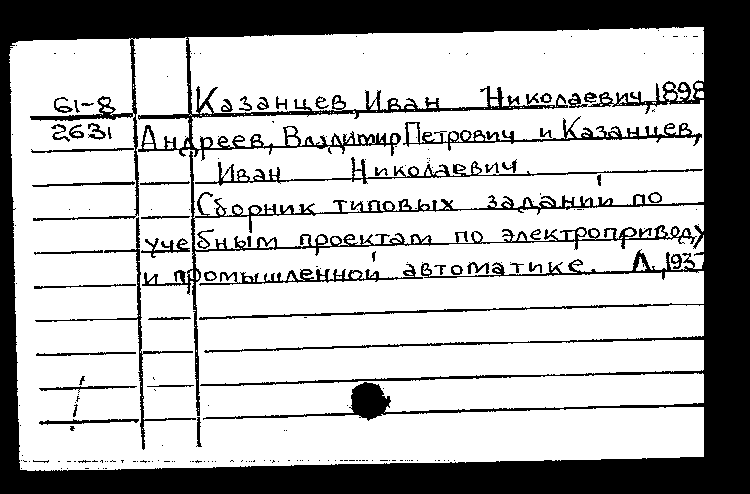 61-8 Казанцев, Иван Николаевич, 1898
2631 Андреев, Владимир Петрович и Казанцев,
Иван Николаевич.
Сборник типовых заданий по
учебным проектам по электроприводу
и промышленной автоматике. Л., 1937